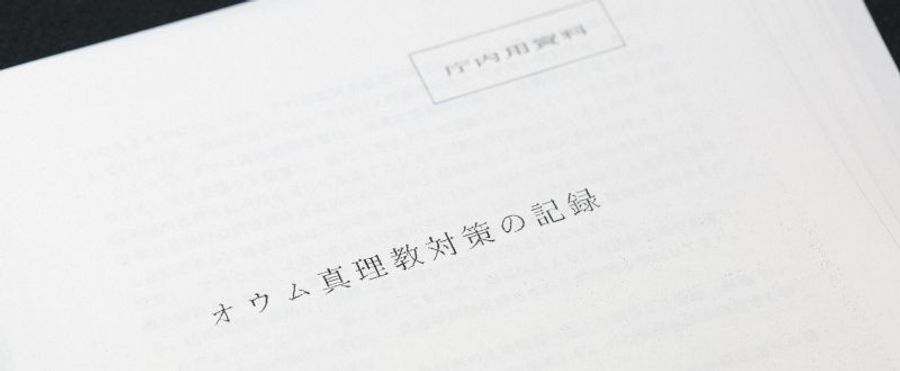 庁内用資料
オウム真理教対策の記録